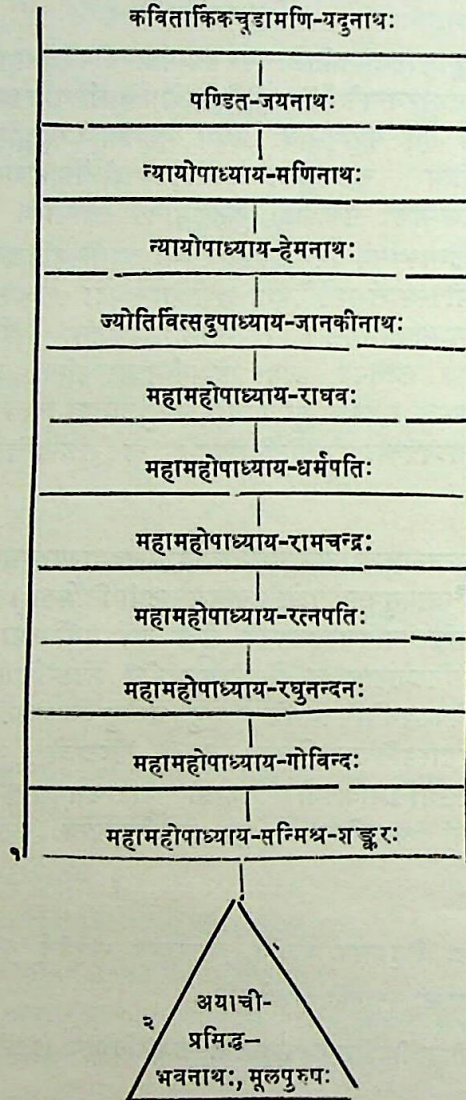 कवितार्किकचूडामणि-यदुनाथः
पण्डित-जयनाथः
न्यायोपाध्याय-मणिनाथः
न्यायोपाध्याय-हेमनाथः
ज्योतिर्वित्सदुपाध्याय-जानकीनाथः
महामहोपाध्याय-राघवः
महामहोपाध्याय-धर्मपतिः
महामहोपाध्याय-रामचन्द्रः
महामहोपाध्याय-रत्नपतिः
महामहोपाध्याय-रघुनन्दनः
महामहोपाध्याय-गोविन्दः
महामहोपाध्याय-सन्मिश्र-शङ्करः
१
२
अयाची-
प्रसिद्ध-
भवनाथः, मूलपुरुषः